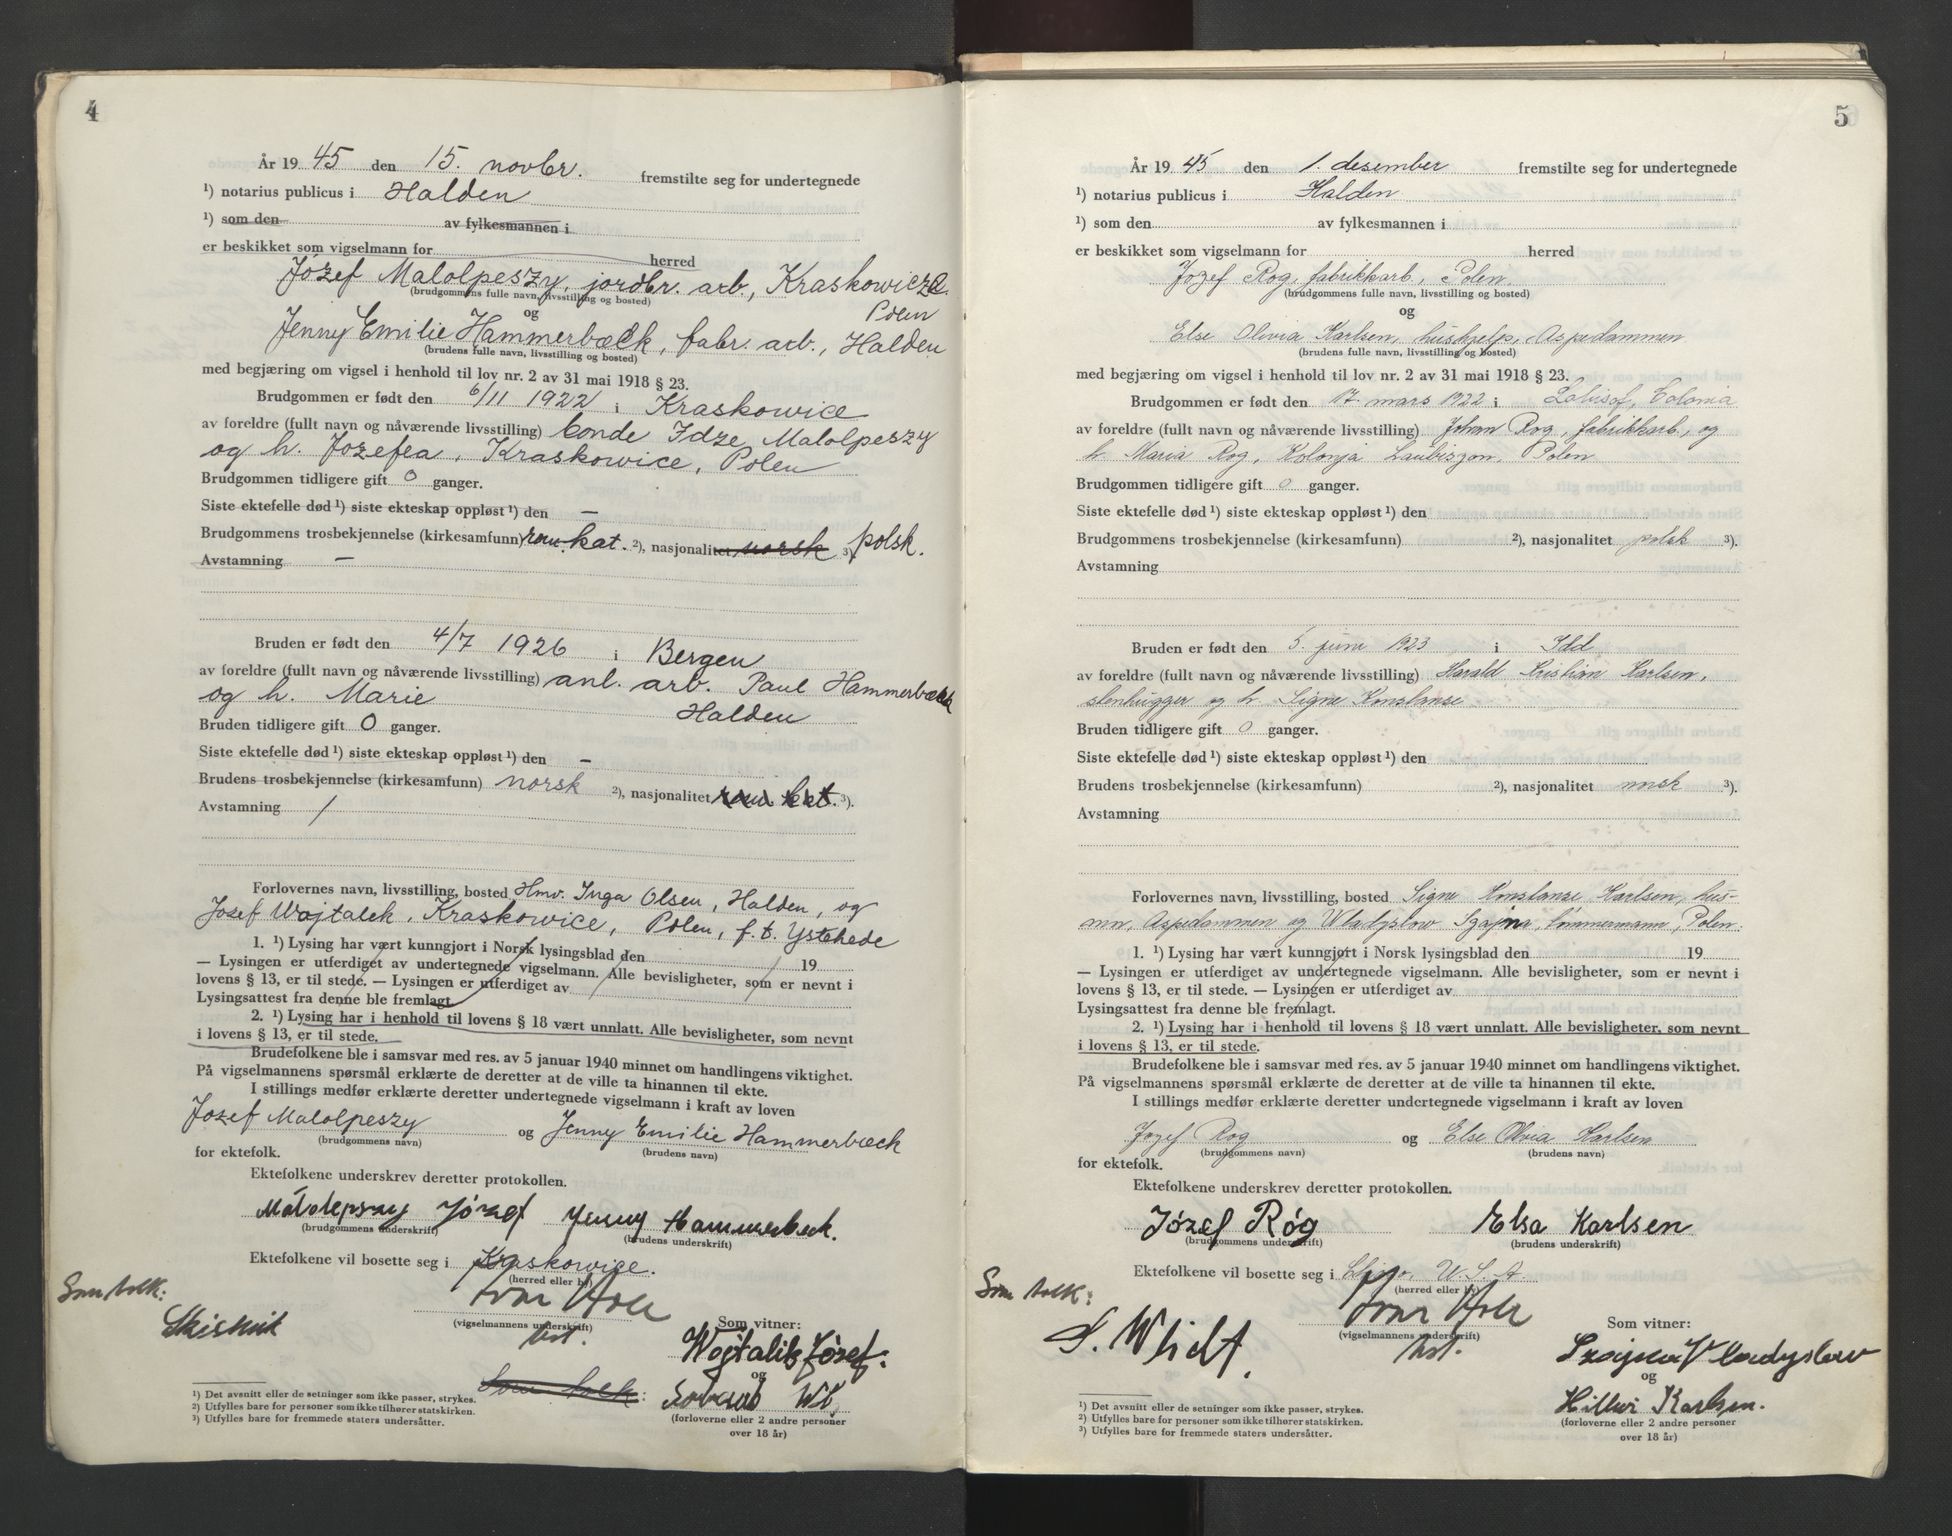 4
År 19 45 den 15. novbr. fremstilte seg for undertegnede
¹) notarius publicus i Halden
¹) som den av fylkesmannen i
er beskikket som vigselmann for herred
Józef Malolpeszy, jordbr. arb., Kraskowice
(brudgommens fulle navn, livsstilling og bosted)
Polen
og
Jenny Emilie Hammerbæck, fabr. arb., Halden
(brudens fulle navn, livsstilling og bosted)
med begjæring om vigsel i henhold til lov nr. 2 av 31 mai 1918 § 23.
Brudgommen er født den 6/11 1922 i Kraskowice
av foreldre (fullt navn og nåværende livsstilling) bonde Idze Malolpeszy
og h. Jozefea, Kraskowice, Polen
Brudgommen tidligere gift 0 ganger.
Siste ektefelle død ¹) siste ekteskap oppløst ¹) den —
Brudgommens trosbekjennelse (kirkesamfunn) rom. kat. ²), nasjonalitet norsk ³) polsk.
Avstamning —
Bruden er født den 4/7 1926 i Bergen
av foreldre (fullt navn og nåværende livsstilling) anl. arb. Paul Hammerbæck
og h. Marie Halden
Bruden tidligere gift 0 ganger.
Siste ektefelle død ¹) siste ekteskap oppløst ¹) den —
Brudens trosbekjennelse (kirkesamfunn) norsk ²), nasjonalitet rom kat. ³).
Avstamning /
Forlovernes navn, livsstilling, bosted Hmv. Inga Olsen, Halden, og
Josef Wojtalek, Kraskowice, Polen, f. t. Ystehede
1. ¹) Lysing har vært kunngjort i Norsk lysingsblad den 19
— Lysingen er utferdiget av undertegnede vigselmann. Alle bevisligheter, som er nevnt i
lovens § 13, er til stede. — Lysingen er utferdiget av
Lysingsattest fra denne ble fremlagt.
2. ¹) Lysing har i henhold til lovens § 18 vært unnlatt. Alle bevisligheter, som nevnt
i lovens § 13, er til stede.
Brudefolkene ble i samsvar med res. av 5 januar 1940 minnet om handlingens viktighet.
På vigselmannens spørsmål erklærte de deretter at de ville ta hinannen til ekte.
I stillings medfør erklærte deretter undertegnede vigselmann i kraft av loven
Jozef Malolpeszy og Jenny Emilie Hammerbæck
(brudgommens navn) (brudens navn)
for ektefolk.
Ektefolkene underskrev deretter protokollen.
Małolepszy Józef Jenny Hammerbeck.
(brudgommens underskrift) (brudens underskrift)
Ektefolkene vil bosette seg i Kraskowice.
(herred eller by)
Som tolk:
Ivar Holt
(vigselmannens underskrift)
Som vitner:
Wojtalik Józef.
og
Som tolk:
(forloverne eller 2 andre personer
over 18 år)
¹) Det avsnitt eller de setninger som ikke passer, strykes.
²) Utfylles bare for personer som ikke tilhører statskirken.
³) Utfylles bare for fremmede staters undersåtter.
5
År 19 45 den 1. desember fremstilte seg for undertegnede
¹) notarius publicus i Halden
¹) som den av fylkesmannen i
er beskikket som vigselmann for herred
Jozef Rog, fabrikkarb., Polen
(brudgommens fulle navn, livsstilling og bosted)
og
Else Olivia Karlsen, hushjelp, Aspedammen
(brudens fulle navn, livsstilling og bosted)
med begjæring om vigsel i henhold til lov nr. 2 av 31 mai 1918 § 23.
Brudgommen er født den 17. mars 1922 i Colonia
av foreldre (fullt navn og nåværende livsstilling) Johan Rog, fabrikkarb., og
h. Maria Rog, Kolonja Laubiszon, Polen
Brudgommen tidligere gift 0 ganger.
Siste ektefelle død ¹) siste ekteskap oppløst ¹) den
Brudgommens trosbekjennelse (kirkesamfunn) ²), nasjonalitet polsk ³).
Avstamning
Bruden er født den 5. juni 1923 i Idd
av foreldre (fullt navn og nåværende livsstilling) Harald Kristian Karlsen,
stenhugger og h. Signe Konstanse
Bruden tidligere gift 0 ganger.
Siste ektefelle død ¹) siste ekteskap oppløst ¹) den
Brudens trosbekjennelse (kirkesamfunn) ²), nasjonalitet norsk ³).
Avstamning
Forlovernes navn, livsstilling, bosted Signe Konstanse Karlsen, hus-
mor, Aspedammen og Wladyslow Szajna, tømmermann, Polen.
1. ¹) Lysing har vært kunngjort i Norsk lysingsblad den 19
— Lysingen er utferdiget av undertegnede vigselmann. Alle bevisligheter, som er nevnt i
lovens § 13, er til stede. — Lysingen er utferdiget av
Lysingsattest fra denne ble fremlagt.
2. ¹) Lysing har i henhold til lovens § 18 vært unnlatt. Alle bevisligheter, som nevnt
i lovens § 13, er til stede.
Brudefolkene ble i samsvar med res. av 5 januar 1940 minnet om handlingens viktighet.
På vigselmannens spørsmål erklærte de deretter at de ville ta hinannen til ekte.
I stillings medfør erklærte deretter undertegnede vigselmann i kraft av loven
Jozef Rog og Else Olvia Karlsen
(brudgommens navn) (brudens navn)
for ektefolk.
Ektefolkene underskrev deretter protokollen.
Józef Róg Elsa Karlsen
(brudgommens underskrift) (brudens underskrift)
Ektefolkene vil bosette seg i U. S. A.
(herred eller by)
Som tolk:
Ivar Holt
(vigselmannens underskrift)
Som vitner:
Szajna Wladyslaw
og
Karlsen.
(forloverne eller 2 andre personer
over 18 år)
¹) Det avsnitt eller de setninger som ikke passer, strykes.
²) Utfylles bare for personer som ikke tilhører statskirken.
³) Utfylles bare for fremmede staters undersåtter.